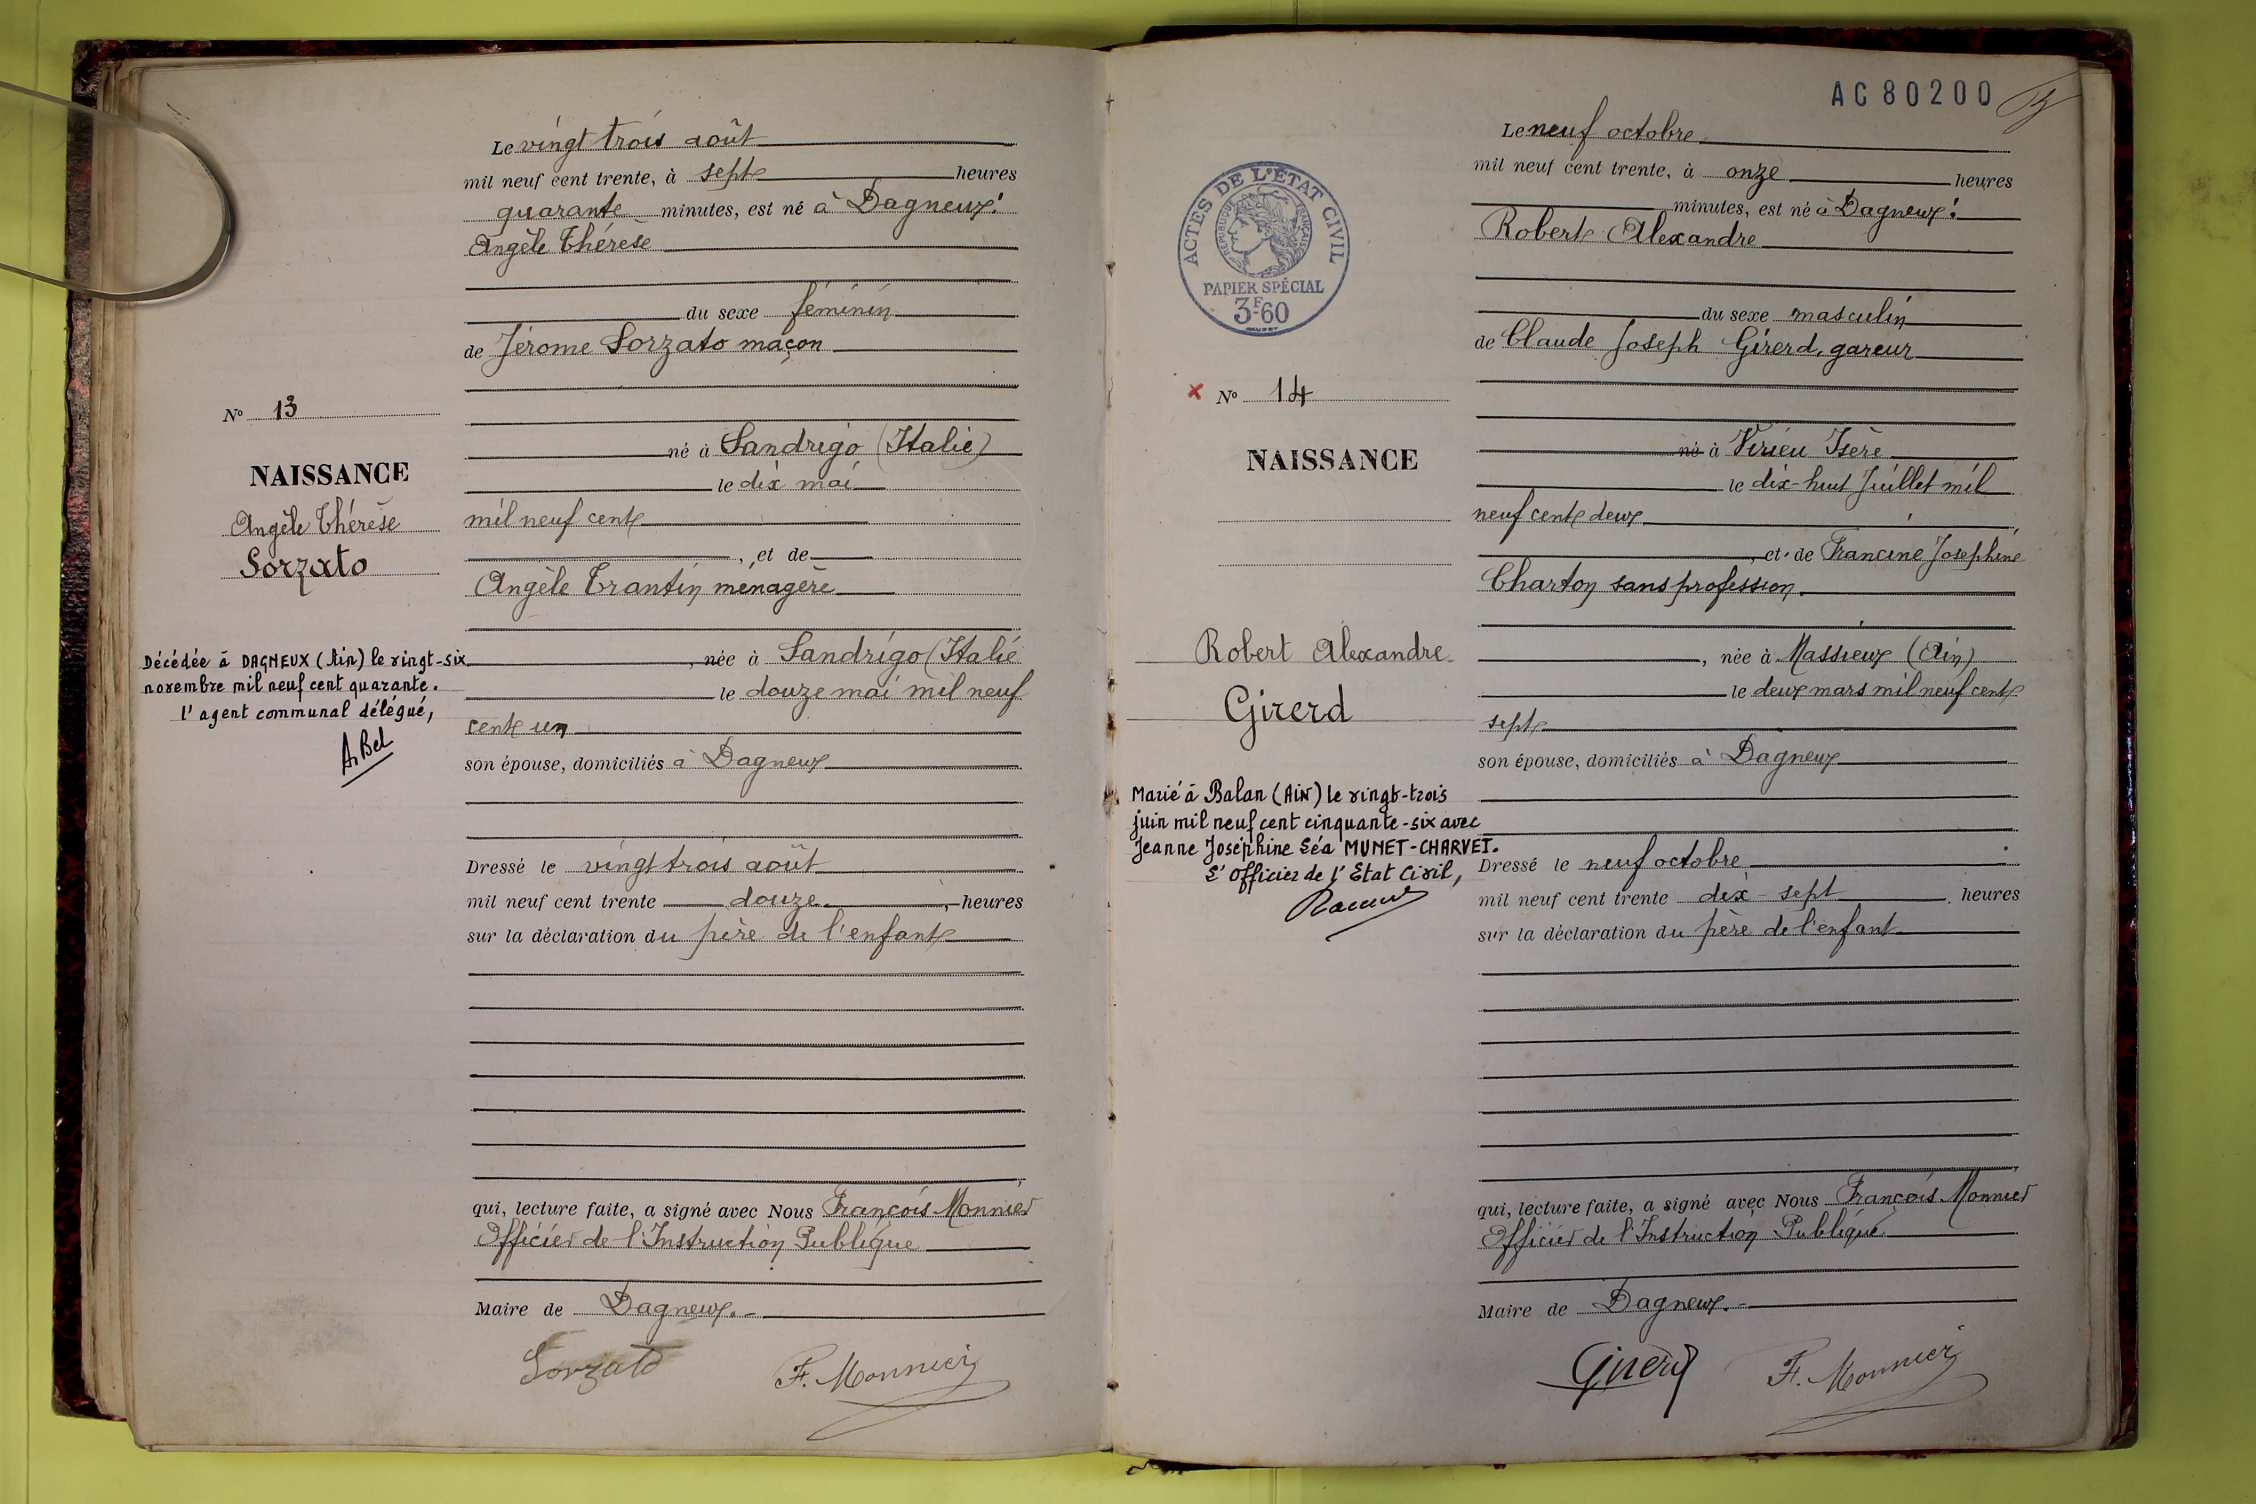 Le vingt trois août
mil neuf cent trente, à sept heures
quarante minutes, est né à Dagneux:
Angèle Thérèse
du sexe féminin
de Jérome Sorzato maçon
né à Sandrigo (Italie)
le dix mai
mil neuf cent
, et de
Angèle Trantin ménagère
, née à Sandrigo (Italie
le douze mai mil neuf
cent un
son épouse, domiciliés à Dagneux
Dressé le vingt trois août
mil neuf cent trente douze, heures
sur la déclaration du père de l'enfant
qui, lecture faite, a signé avec Nous François Monnier
Officier de l'Instruction Publique
Maire de Dagneux.
Sorzato F. Monnier
No 13
NAISSANCE
Angèle Thérèse
Sorzato
Décédée à DAGNEUX (Ain) le vingt-six
novembre mil neuf cent quarante.
l'agent communal délégué,
A. Bel
AC 80200
Le neuf octobre
mil neuf cent trente, à onze heures
minutes, est né à Dagneux:
Robert Alexandre
du sexe masculin
de Claude Joseph Girerd, gareur
né à Virieu Isère
le dix-huit Juillet mil
neuf cent deux
, et de Francine Joséphine
Charton sans profession.
, née à Massieux (Ain)
le deux mars mil neuf cent
sept
son épouse, domiciliés à Dagneux
Dressé le neuf octobre
mil neuf cent trente dix-sept heures
sur la déclaration du père de l'enfant
qui, lecture faite, a signé avec Nous François Monnier
Officier de l'Instruction Publique
Maire de Dagneux.
Girerd F. Monnier
ACTES DE L'ÉTAT CIVIL
RÉPUBLIQUE FRANÇAISE
PAPIER SPÉCIAL
3F60
x No 14
NAISSANCE
Robert Alexandre
Girerd
Marié à Balan (AIN) le vingt-trois
juin mil neuf cent cinquante-six avec
Jeanne Joséphine Léa MUNET-CHARVET.
L'Officier de l'Etat Civil,